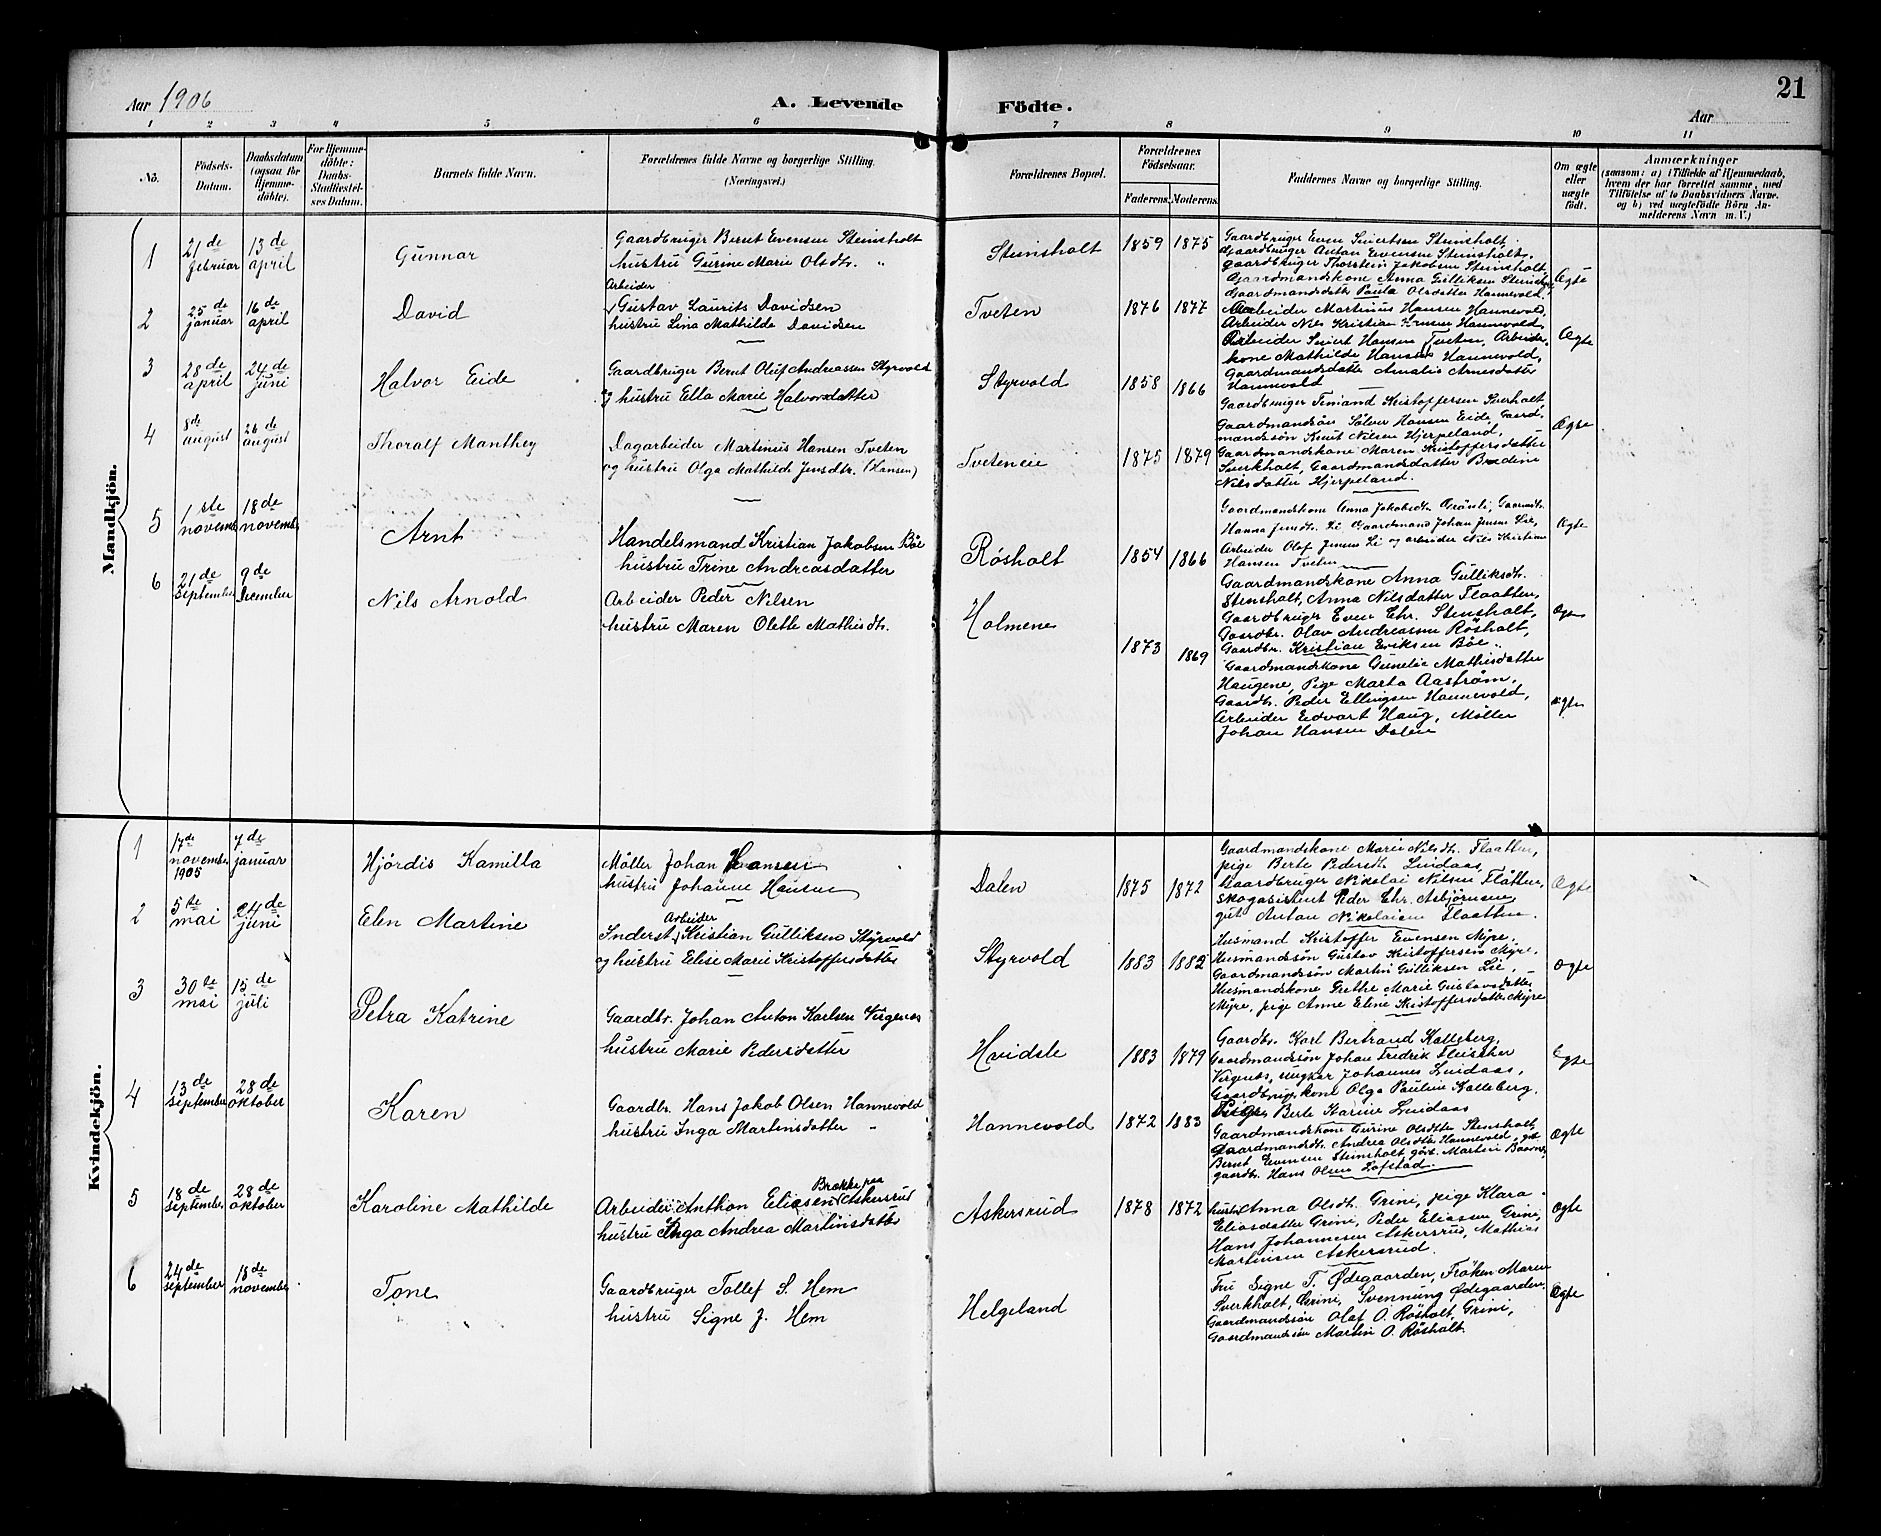 Aar 1906
A. Levende Födte.
21
Aar
1 2 3 4 5 6 7 8 9 10 11
No.
Födsels-Datum.
Daabsdatum (ogsaa for Hjemme-döbte).
For Hjemme-döbte: Daabs-Stadfæstel-ses Datum.
Barnets fulde Navn.
Forældrenes fulde Navne og borgerlige Stilling. (Næringsvei.)
Forældrenes Bopæl.
Forældrenes Födselsaar.
Faderens. Moderens.
Faddernes Navne og borgerlige Stilling.
Om ægte eller uægte födt.
Anmærkninger
(saasom: a) i Tilfælde af Hjemmedaab, hvem der har forrettet samme, med Tilföielse af to Daabsvidners Navne, og b) ved uægtefödte Börn An-melderens Navn m. V.)
Mandkjön.
1 21de februar 13de april Gunnar
Gaardbruger Bernt Evensen Steinsholt
hustru Gurine Marie Olsdtr. "
Steinsholt 1859 1875
Gaardbruger Even Sivertsen Steinsholt,
Gaardbruger Anton Evensen Steinsholt,
Gaardbruger Thorstein Jakobsen Steinsholt,
Gaardmandskone Anna Gulliksen Steinsholt,
Gaardmandsdatter Paula Olsdatter Hannevold,
Ægte
2 25de januar 16de april David
Arbeider
Gustav Laurits Davidsen
hustru Lina Mathilde Davidsen
Tveten 1876 1877
Arbeider Martinus Hansen Hannevold,
Arbeider Nils Kristian Hansen Hannevold,
Arbeider Sivert Hansen Tveten, Arbeider-
kone Mathilde Hansen Hannevold,
Gaardmandsdatter Amalie Arnesdatter
Hannevold
Ægte
3 28de april 24de juni Halvor Eide
Gaardbruger Bernt Oluf Andreassen Styrvold
og hustru Ella Marie Halvorsdatter
Styrvold 1858 1866
Gaardbruger Timand Kristoffersen Sverkholt,
Gaardmandsön Sölver Hansen Eide, Gaard-
mandssön Knut Nilsen Hjerpeland,
Gaardmandskone Maren Kristoffersdatter
Sverkholt, Gaardmandsdatter Bredine
Nilsdatter Hjerpeland.
Ægte
4 8de august 26de august Thoralf Manthey
Dagarbeider Martinus Hansen Tveten
og hustru Olga Mathilde Jensdtr. (Hansen)
Tveteneie 1875 1879
Gaardmandskone Anna Jakobsdtr. Grönli, Gaardmdtr.
Hanna Jensdtr. Li Gaardmand Johan Jensen Lie,
Arbeider Olaf Jensen Li og arbeider Nils Kristian
Hansen Tveten
Ægte
5 1ste november 18de november Arnt
Handelsmand Kristian Jakobsen Böe
hustru Trine Andreasdatter
Rösholt 1854 1866
Gaardmandskone Anna Gulliksdtr.
Stensholt, Anna Nilsdatter Flaatten,
Gaardbruger Even Chr. Stensholt,
Gaardbr. Olav Andreassen Rösholt,
Gaardbr. Kristian Eriksen Böe "
Ægte
6 21de september 9de December Nils Arnold
Arbeider Peder Nilsen
hustru Maren Olette Mathisdtr.
Holmene 1873 1869
Gaardmandskone Gunelie Mathisdatter
Haugene, Pige Marta Aaström,
Gaardbr. Peder Ellingsen Hannevold,
Arbeider Edvart Haug, Möller
Johan Hansen Dalen
Ægte
Kvindekjön.
1 17de november 1905 7de januar Hjördis Kamilla
Möller Johan Hansen
hustru Johanne Hansen
Dalen 1875 1872
Gaardmandskone Marie Nilsdt. Flaatten,
pige Berte Pedersdtr. Lindaas,
Gaardbruger Nikolai Nilsen Flåtten,
skogasistent Peder Chr. Asbjörnsen,
gut Anton Nikolaisen Flaatten.
Ægte
2 5te mai 24de juni Elen Martine
Inderst Arbeider Kristian Gulliksen Styrvold
og hustru Elise Marie Kristoffersdatter
Styrvold 1883 1882
Husmand Kristoffer Evensen Myre,
Husmandssön Gustav Kristoffersen Myre,
Gaardmandssön Martin Gulliksen Lie,
Husmandskone Grethe Marie Gustavsdatter
Myre, pige Anne Eline Kristoffersdatter Myre
Ægte
3 30te mai 15de juli Petra Katrine
Gaardbr. Johan Anton Karlsen Virgenes
hustru Marie Pedersdatter
Hvidsle 1883 1879
Gaardbr. Karl Bertrand Kalleberg,
Gaardmandssön Johan Fredrik Fleischer
Virgenes, ungkar Johannes Lindaas,
Gaardbrugerskone Olga Pauline Kalleberg.
Pige Berte Karine Lindaas
Ægte
4 13de september 28de oktober Karen
Gaardbr. Hans Jakob Olsen Hannevold
hustru Inga Martinsdatter "
Hannevold 1872 1883
Gaardmandskone Gurine Olsdtr Stensholt,
Gaardmandsdt. Andrea Olsdtr Hannevold, gbr.
Bernt Evensen Steinsholt, gbr. Martin Baarnes,
gaardbr. Hans Olsen Löfstad.
Ægte
5 18de september 28de oktober Karoline Mathilde
Arbeider Anthon Eliasen Brekke paa Askersrud
hustru Inga Andrea Martinsdatter
Askersrud 1878 1872
hustru Anna Olsdt. Grini, pige Klara
Eliasdatter Grini, Peder Eliassen Grini,
Hans Johannesen Askersrud, Mathias
Martinsen Askersrud.
Ægte
6 24de september 18de november Tone
Gaardbruger Tollef S. Hem
hustru Signe J. Hem
Helgeland
Fru Signe T. Ödegaarden, Fröken Maren
Sverkholt, Grini, Svennung Ödegaarden.
Gaardmandssön Olaf O. Rösholt, Grini,
Gaardmandssön Martin O. Rösholt.
Ægte